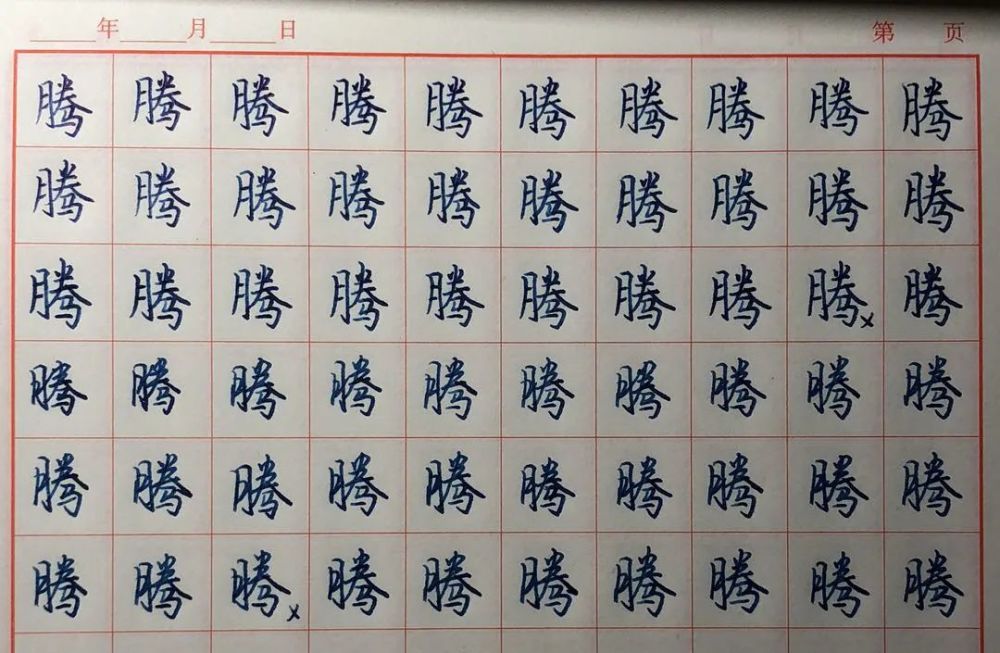 年 月 日 第 页
腾 腾 腾 腾 腾 腾 腾 腾 腾 腾
腾 腾 腾 腾 腾 腾 腾 腾 腾 腾
腾 腾 腾 腾 腾 腾 腾 腾 腾× 腾
腾 腾 腾 腾 腾 腾 腾 腾 腾 腾
腾 腾 腾 腾 腾 腾 腾 腾 腾 腾
腾 腾 腾× 腾 腾 腾 腾 腾 腾 腾